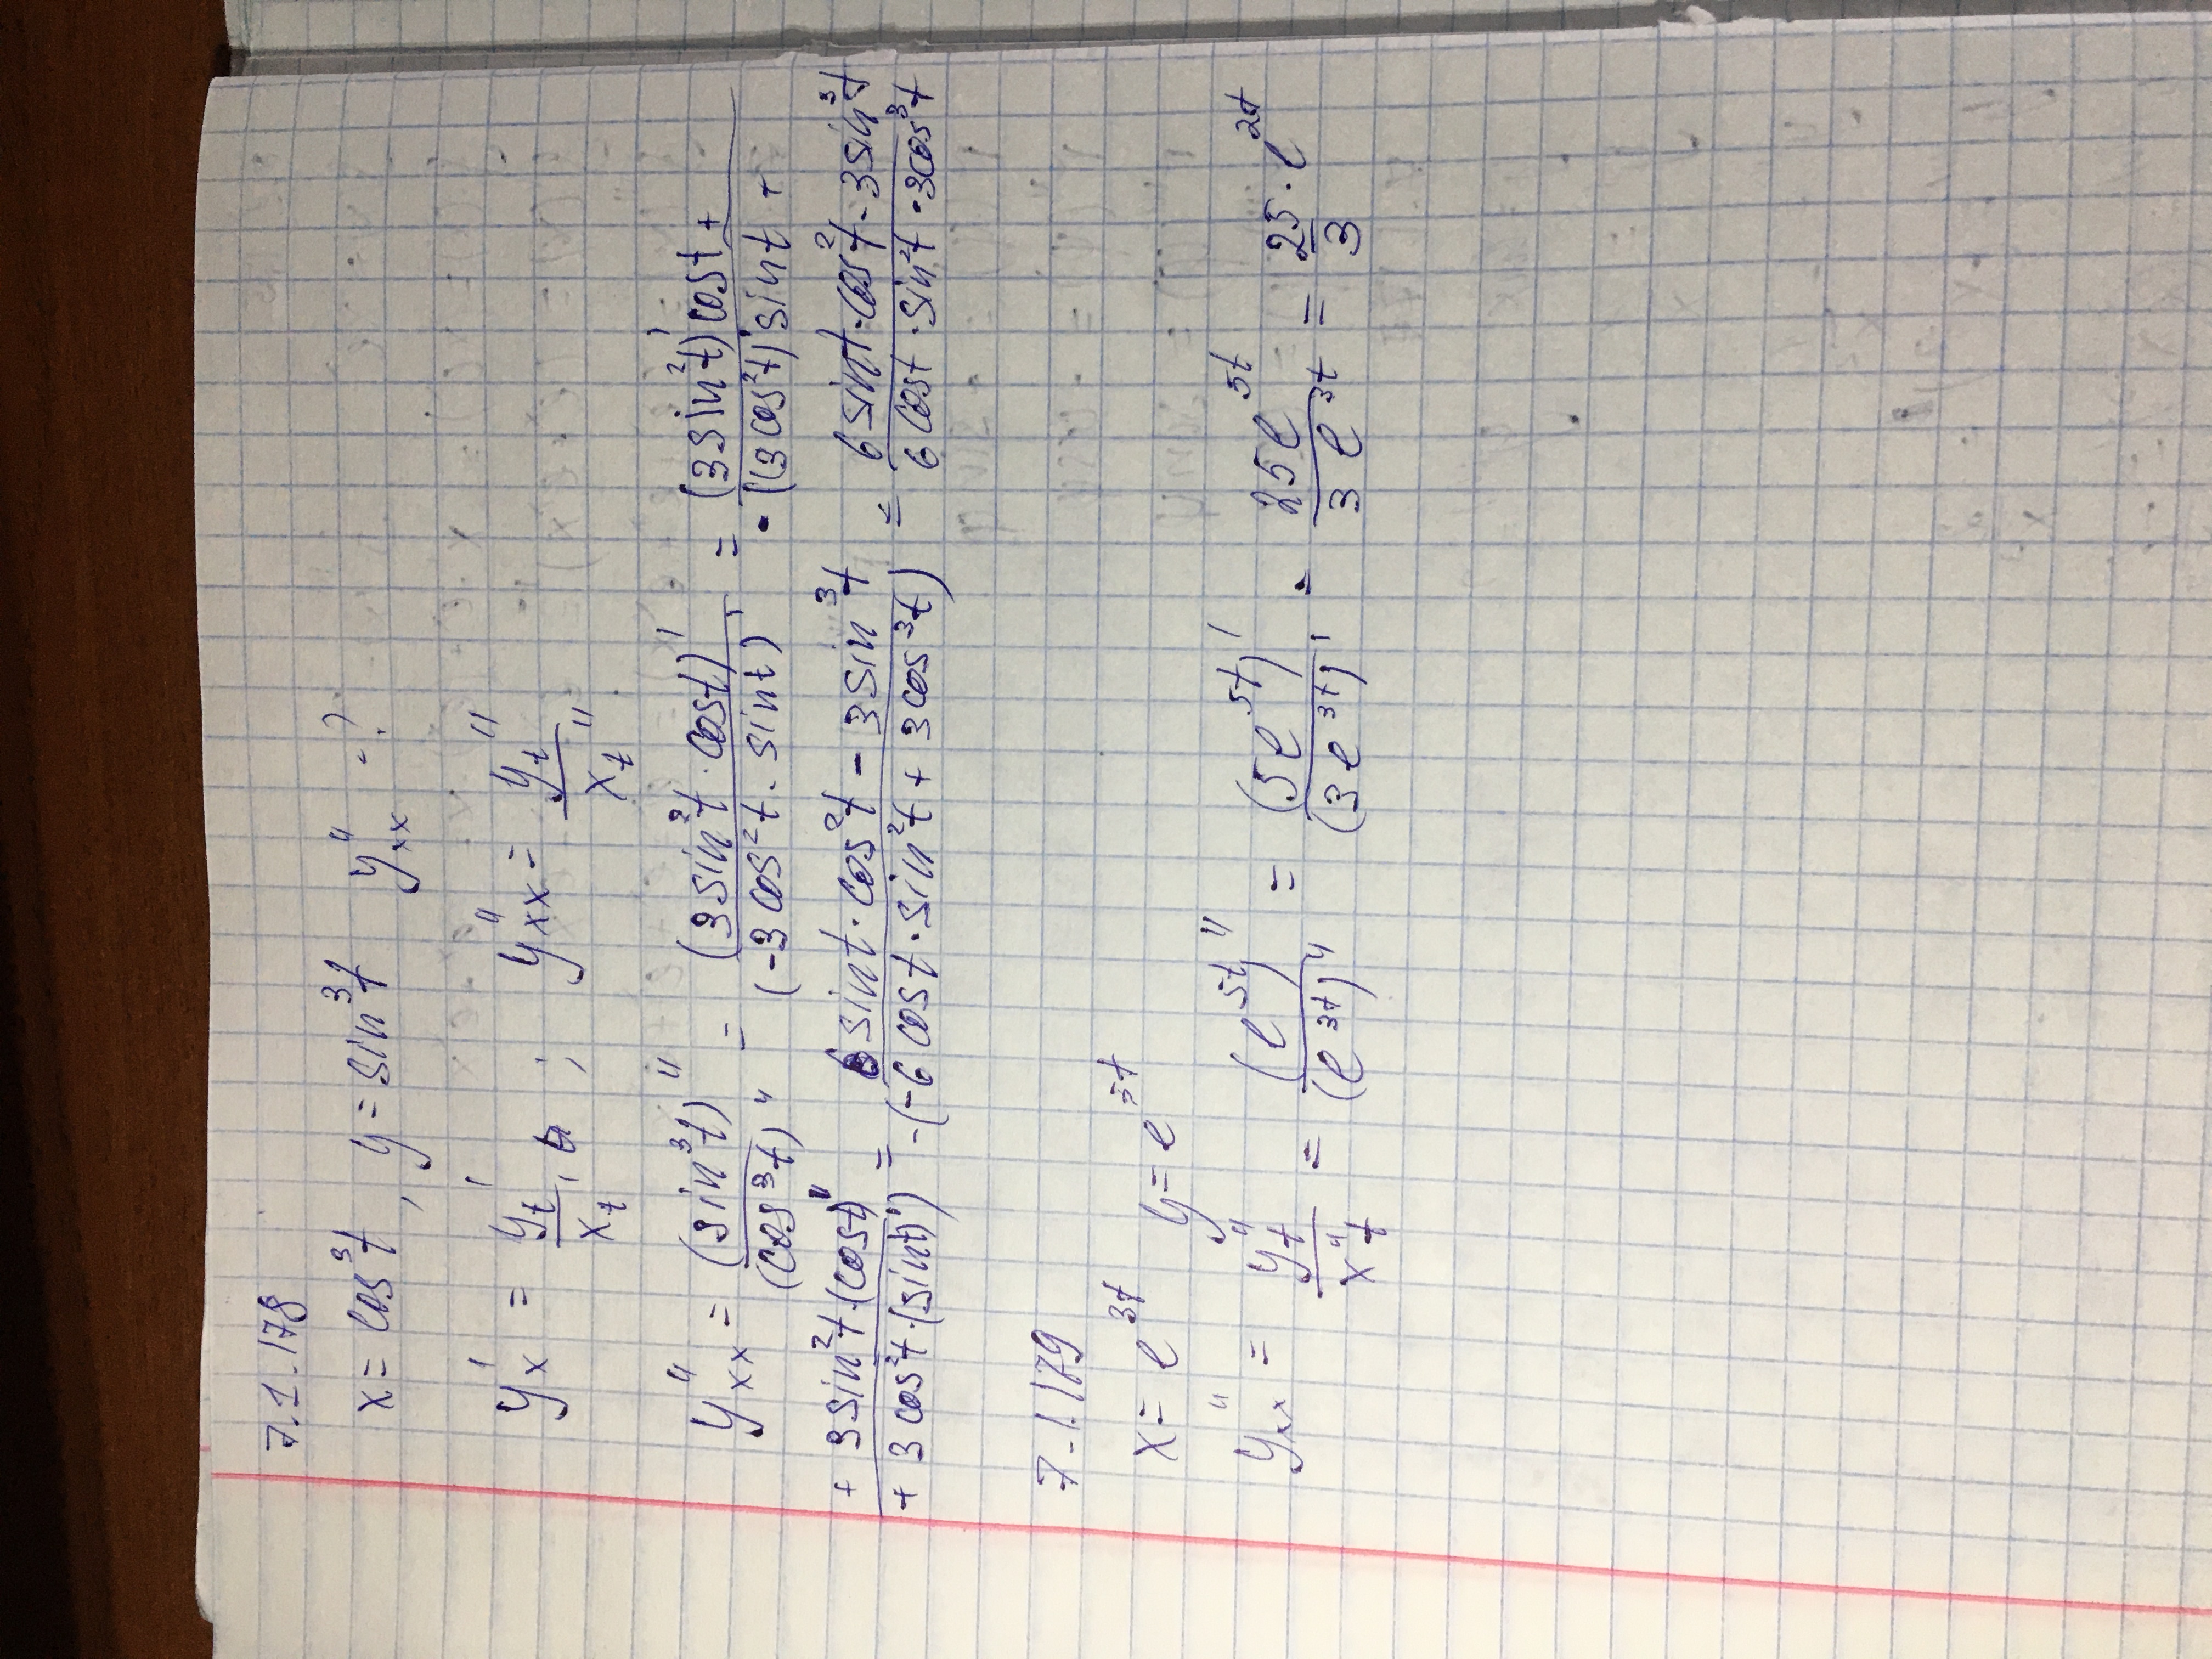 7.1.178
x = cos³t , y = sin³t y''ₓₓ - ?
y'ₓ = y'ₜ / x'ₜ ; y''ₓₓ = y''ₜ / x''ₜ
y''ₓₓ = (sin³t)'' / (cos³t)'' = (3sin²t · cost)' / (-3cos²t · sint)' = (3sin²t)'cost + / -((3cos²t)'sint +
+ 3sin²t·(cost)' / + 3cos²t·(sint)') = 6sint·cos²t - 3sin³t / -(-6cost·sin²t + 3cos³t) = 6sint·cos²t - 3sin³t / 6cost·sin²t - 3cos³t
7.1.179
x = e^3t y = e^5t
y''ₓₓ = y''ₜ / x''ₜ = (e^5t)'' / (e^3t)'' = (5e^5t)' / (3e^3t)' = 25e^5t / 3e^3t = 25/3 · e^2t